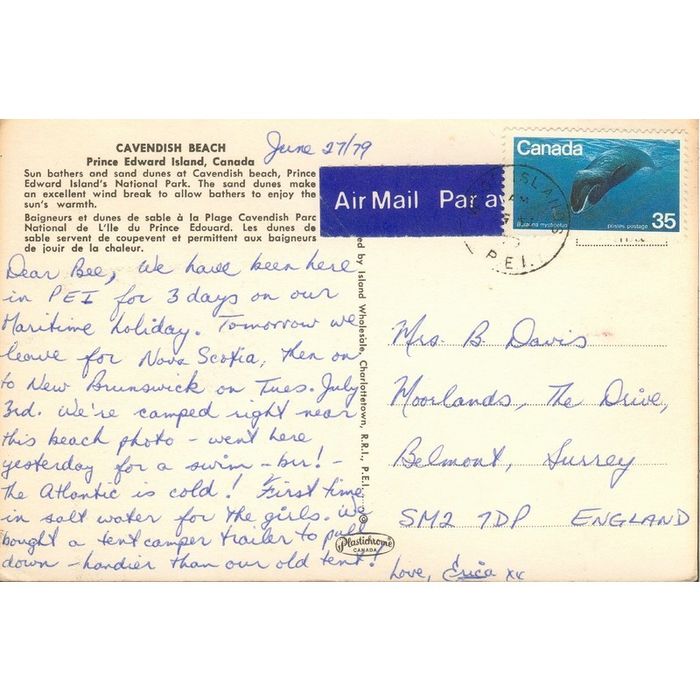 CAVENDISH BEACH
Prince Edward Island, Canada
Sun bathers and sand dunes at Cavendish beach, Prince
Edward Island's National Park. The sand dunes make
an excellent wind break to allow bathers to enjoy the
sun's warmth.
Baigneurs et dunes de sable à la Plage Cavendish Parc
National de L'Ile du Prince Edouard. Les dunes de
sable servent de coupevent et permittent aux baigneurs
de jouir de la chaleur.
June 27/79
Air Mail Par av
Canada
35
postes postage
ISLANDS
AM
P.E.I.
Dear Bee, We have been here
in PEI for 3 days on our
Maritime holiday. Tomorrow we
leave for Nova Scotia, then on
to New Brunswick on Tues. July
3rd. We're camped right near
this beach photo - went here
yesterday for a swim - brr! -
the Atlantic is cold! First time
in salt water for the girls. We
bought a tent camper trailer to pull
down - handier than our old tent!
Love, Erica xx
ed by Island Wholesale, Charlottetown, R.R.I., P.E.I.
Plastichrome
CANADA
Mrs. B. Davis
Moorlands, The Drive,
Belmont, Surrey
SM2 7DP ENGLAND